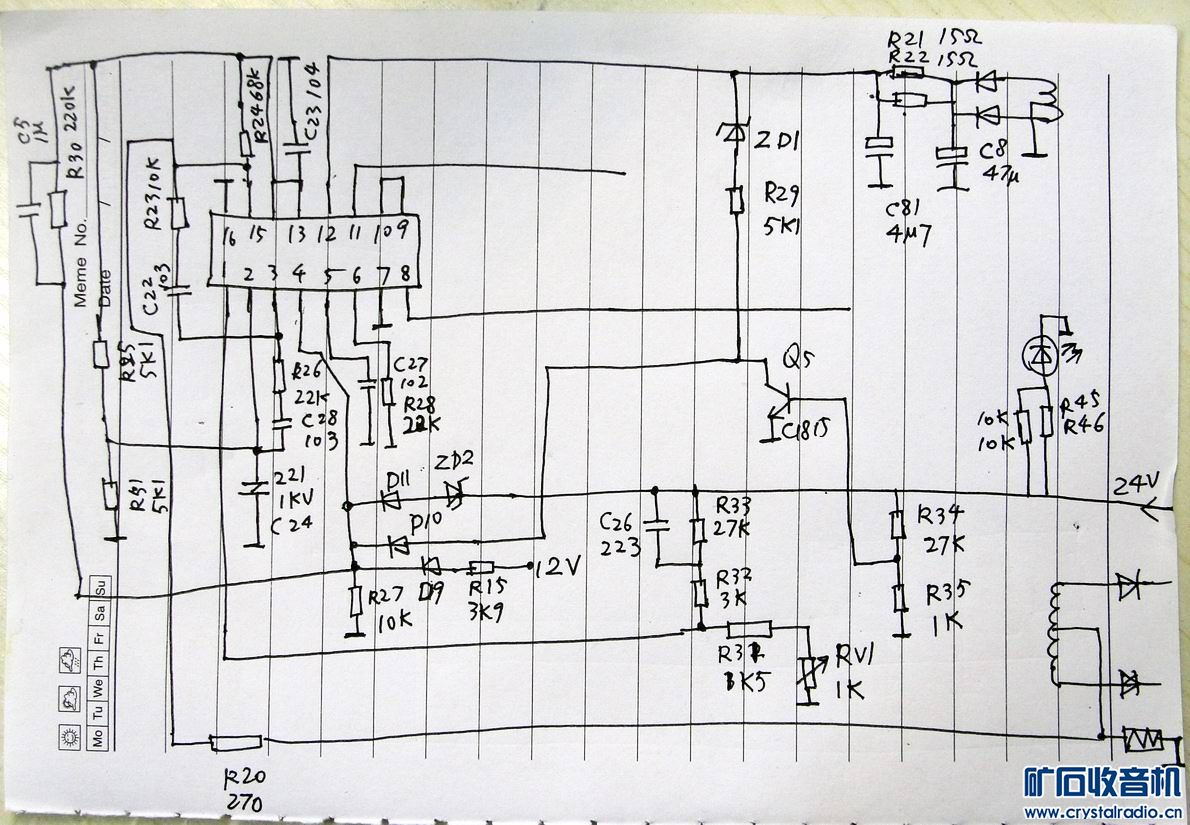 R21 15Ω
R22 15Ω
C5
1μ
R30 220k
R24 68k
C23 104
ZD1
R29
5K1
C8
47μ
C81
4μ7
R23 10K
C22
103
16 15 13 12 11 10 9
1 2 3 4 5 6 7 8
Meme No.
Date
5K1
R26
22K
C28
103
C27
102
R28
22K
Q5
C1815
R45
R46
10K
10K
24V
221
1KV
C24
5K1
D11
ZD2
D10
D9
R15
3K9
12V
R27
10K
C26
223
R33
27K
R32
3K
R34
27K
R35
1K
RV1
1K
R20
270
Mo Tu We Th Fr Sa Su
矿石收音机
www.crystalradio.cn